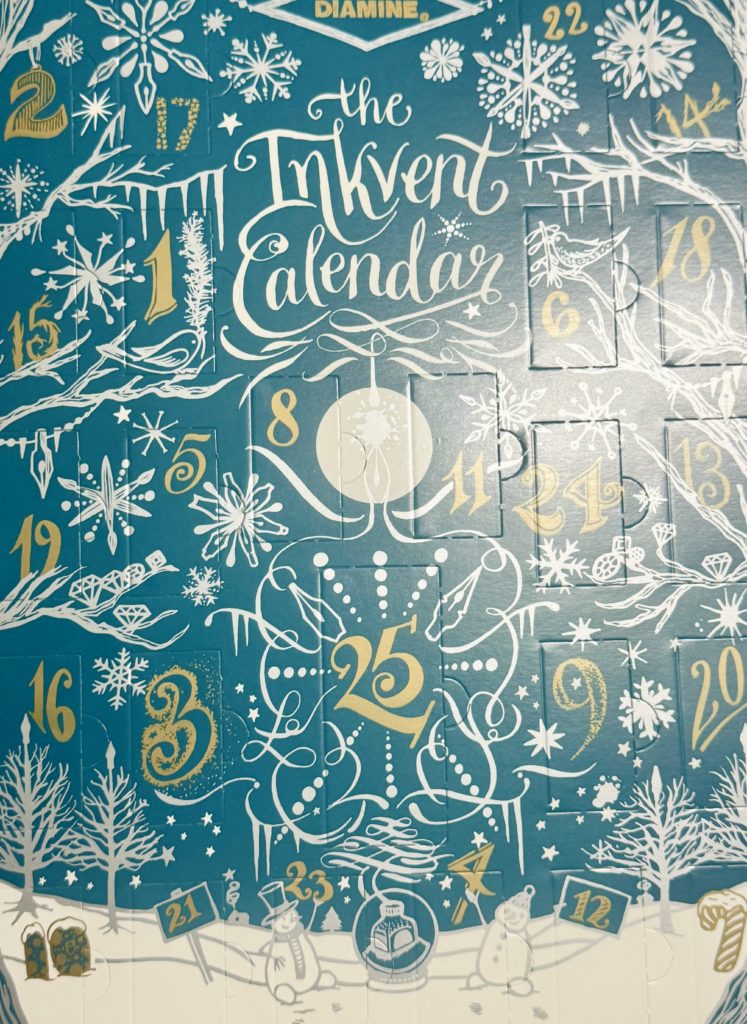 DIAMINE®
22
2
17
14
the
Inkvent
Calendar
1
18
6
15
8
5
11
24
13
19
25
16
3
9
20
23
4
21
12
10
7